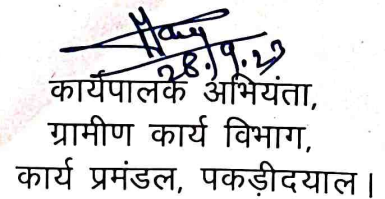 28.9.23
कार्यपालक अभियंता,
ग्रामीण कार्य विभाग,
कार्य प्रमंडल, पकड़ीदयाल।